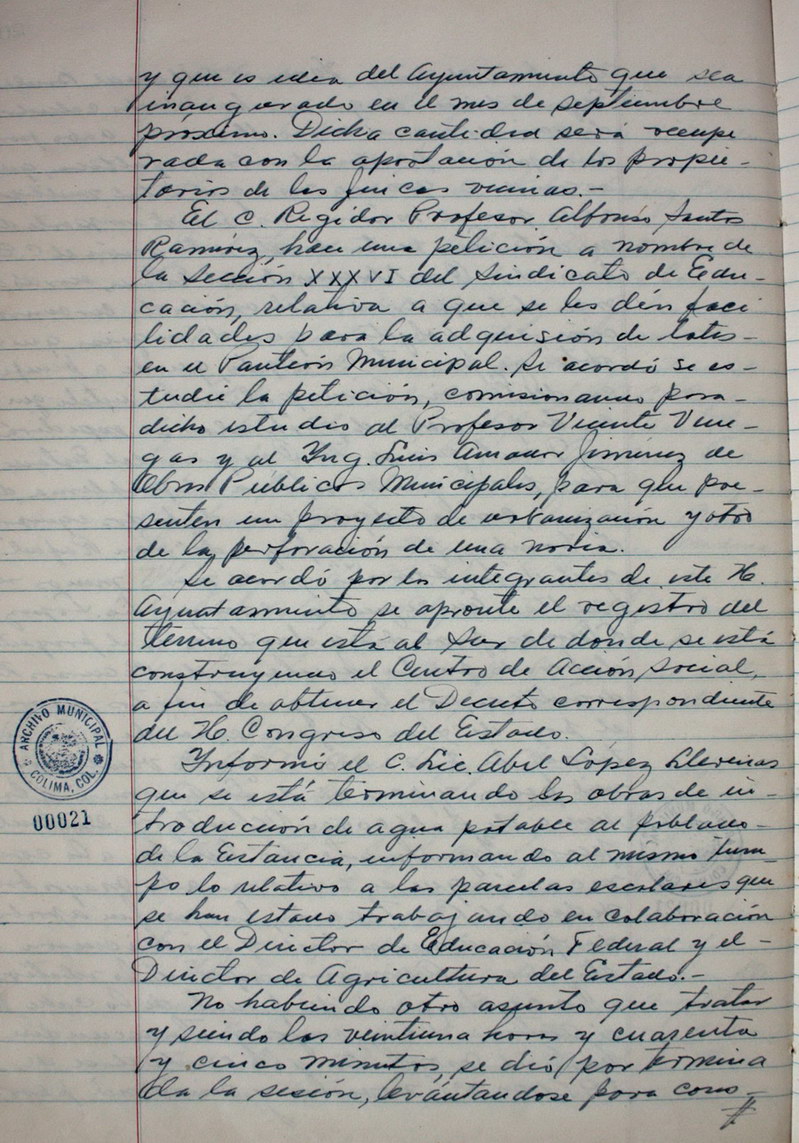 y que es idea del Ayuntamiento que sea
inaugurado en el mes de septiembre
próximo. Dicha cantidad será recupe
rada con la aportación de los propie-
tarios de las fincas vecinas.-
El C. Regidor Profesor Alfonso Santos
Ramírez, hace una petición a nombre de
la Sección XXXVI del Sindicato de Edu-
cación, relativa a que se les dén faci
lidades para la adquisión de lotes-
en el Panteón Municipal. Se acordó se es-
tudie la petición, comisionando para-
dicho estudio al Profesor Vicente Vene-
gas y al Ing. Luis Amador Jiménez de
Obras Publicas Municipales, para que pre-
senten un proyecto de urbanización y otro
de la perforación de una noria.
Se acordó por los integrantes de este H.
Ayuntamiento se apronte el registro del
terreno que está al Sur de donde se está
construyendo el Centro de Acción Social,
a fin de obtener el Decreto correspondiente
del H. Congreso del Estado.
Informó el C. Lic. Abel López Llerenas
que se está terminando las obras de in-
troducción de agua potable al poblado-
de la Estancia, informando al mismo tiem-
po lo relativo a las parcelas escolares que
se han estado trabajando en colaboración
con el Director de Educación Federal y el-
Director de Agricultura del Estado.-
No habiendo otro asunto que tratar
y siendo las veintiuna horas y cuarenta
y cinco minutos, se dió por termina
da la sesión, levántandose para cons-
#
ARCHIVO MUNICIPAL
COLIMA, COL.
00021